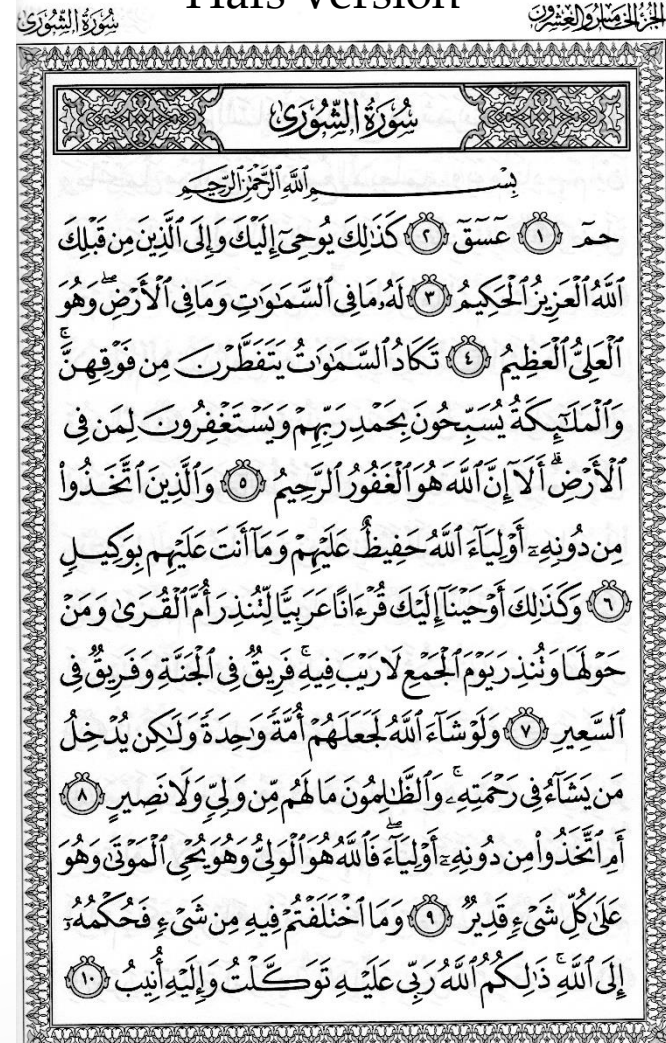 Hafs Version
سُورَةُ الشُّورَىٰ
الجُزْءُ الخَامِسُ وَالعِشْرُونَ
سُورَةُ الشُّورَىٰ
بِسْمِ ٱللَّهِ ٱلرَّحْمَٰنِ ٱلرَّحِيمِ
حمٓ ﴿١﴾ عٓسٓقٓ ﴿٢﴾ كَذَٰلِكَ يُوحِىٓ إِلَيْكَ وَإِلَى ٱلَّذِينَ مِن قَبْلِكَ
ٱللَّهُ ٱلْعَزِيزُ ٱلْحَكِيمُ ﴿٣﴾ لَهُۥ مَا فِى ٱلسَّمَٰوَٰتِ وَمَا فِى ٱلْأَرْضِ ۖ وَهُوَ
ٱلْعَلِىُّ ٱلْعَظِيمُ ﴿٤﴾ تَكَادُ ٱلسَّمَٰوَٰتُ يَتَفَطَّرْنَ مِن فَوْقِهِنَّ ۚ
وَٱلْمَلَٰٓئِكَةُ يُسَبِّحُونَ بِحَمْدِ رَبِّهِمْ وَيَسْتَغْفِرُونَ لِمَن فِى
ٱلْأَرْضِ ۗ أَلَآ إِنَّ ٱللَّهَ هُوَ ٱلْغَفُورُ ٱلرَّحِيمُ ﴿٥﴾ وَٱلَّذِينَ ٱتَّخَذُوا۟
مِن دُونِهِۦٓ أَوْلِيَآءَ ٱللَّهُ حَفِيظٌ عَلَيْهِمْ وَمَآ أَنتَ عَلَيْهِم بِوَكِيلٍ
﴿٦﴾ وَكَذَٰلِكَ أَوْحَيْنَآ إِلَيْكَ قُرْءَانًا عَرَبِيًّا لِّتُنذِرَ أُمَّ ٱلْقُرَىٰ وَمَنْ
حَوْلَهَا وَتُنذِرَ يَوْمَ ٱلْجَمْعِ لَا رَيْبَ فِيهِ ۚ فَرِيقٌ فِى ٱلْجَنَّةِ وَفَرِيقٌ فِى
ٱلسَّعِيرِ ﴿٧﴾ وَلَوْ شَآءَ ٱللَّهُ لَجَعَلَهُمْ أُمَّةً وَٰحِدَةً وَلَٰكِن يُدْخِلُ
مَن يَشَآءُ فِى رَحْمَتِهِۦ ۚ وَٱلظَّٰلِمُونَ مَا لَهُم مِّن وَلِىٍّ وَلَا نَصِيرٍ ﴿٨﴾
أَمِ ٱتَّخَذُوا۟ مِن دُونِهِۦٓ أَوْلِيَآءَ ۖ فَٱللَّهُ هُوَ ٱلْوَلِىُّ وَهُوَ يُحْىِ ٱلْمَوْتَىٰ وَهُوَ
عَلَىٰ كُلِّ شَىْءٍ قَدِيرٌ ﴿٩﴾ وَمَا ٱخْتَلَفْتُمْ فِيهِ مِن شَىْءٍ فَحُكْمُهُۥٓ
إِلَى ٱللَّهِ ۚ ذَٰلِكُمُ ٱللَّهُ رَبِّى عَلَيْهِ تَوَكَّلْتُ وَإِلَيْهِ أُنِيبُ ﴿١٠﴾